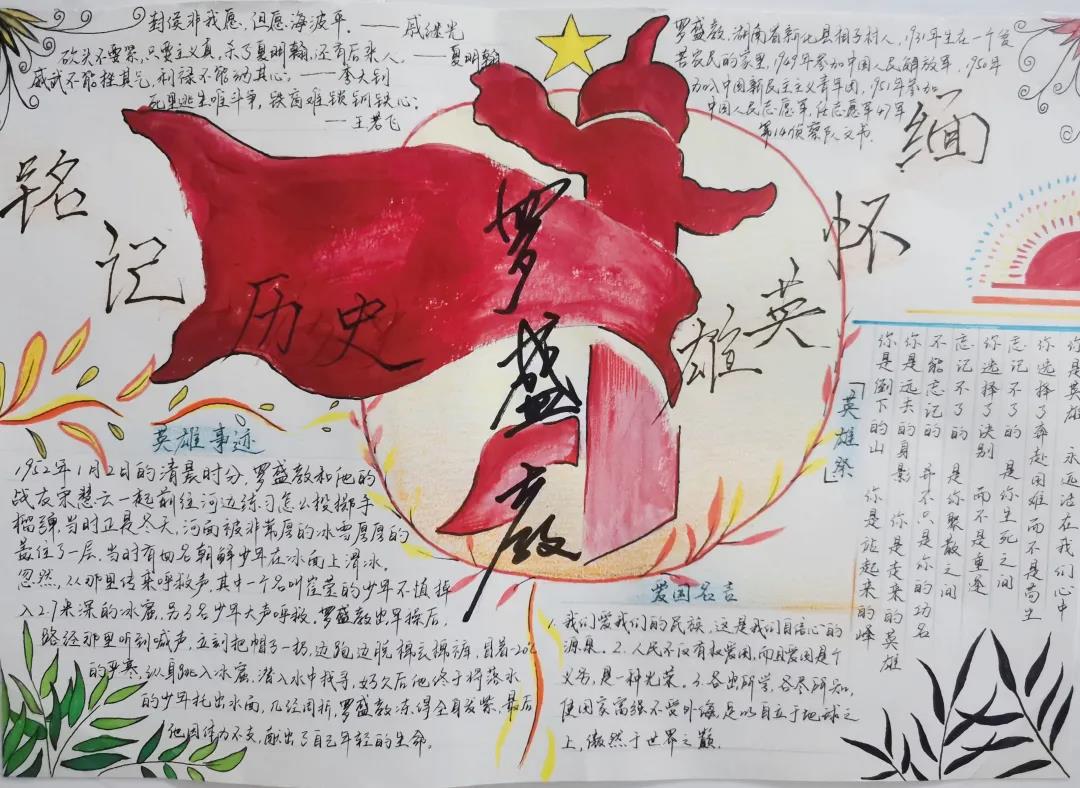 封侯非我愿，但愿海波平。——戚继光
砍头不要紧，只要主义真，杀了夏明翰，还有后来人。——夏明翰
威武不能挫其气，利禄不能动其心。——李大钊
死里逃生唯斗争，铁窗难锁钢铁心；
——王若飞
罗盛教，湖南省新化县桐子村人，1931年生在一个贫
苦农民的家里，1949年参加中国人民解放军，1950年
加入中国新民主主义青年团，1951年参加
中国人民志愿军，任志愿军47军
第141侦察队文书。
铭记
历史
缅
怀
英
雄
罗盛教
英雄事迹
1952年1月2日的清晨时分，罗盛教和他的
战友宋慧云一起前往河边练习怎么投掷手
榴弹，当时正是冬天，河面被非常厚的冰雪厚厚的
盖住了一层，当时有四名朝鲜少年在冰面上滑冰。
忽然，从那里传来呼救声，其中一个名叫崔莹的少年不慎掉
入2.7米深的冰窟，另3名少年大声呼救。罗盛教出早操后，
路经那里听到喊声，立刻把帽子一扔，边跑边脱棉衣棉裤，冒着-20℃
的严寒，纵身跳入冰窟，潜入水中找寻，好久后他终于将落水
的少年托出水面，几经周折，罗盛教冻得全身发紫，最后
他因体力不支，献出了自己年轻的生命。
爱国名言
1.我们爱我们的民族，这是我们自信心的
源泉。2.人民不仅有权爱国，而且爱国是个
义务，是一种光荣。3.各出所学，各尽所知，
使国家富强不受外侮，足以自立于地球之
上，傲然于世界之巅。
「英雄祭」
你是英雄 永远活在我们心中
你选择了奔赴困难而不是苟生
忘记不了的 是你生死之间
你选择了诀别 而不是重逢
忘记不了的 是你聚散之间
不能忘记的 并不只是你的功名
你是远去的身影 你是走来的英雄
你是倒下的山 你是站起来的峰